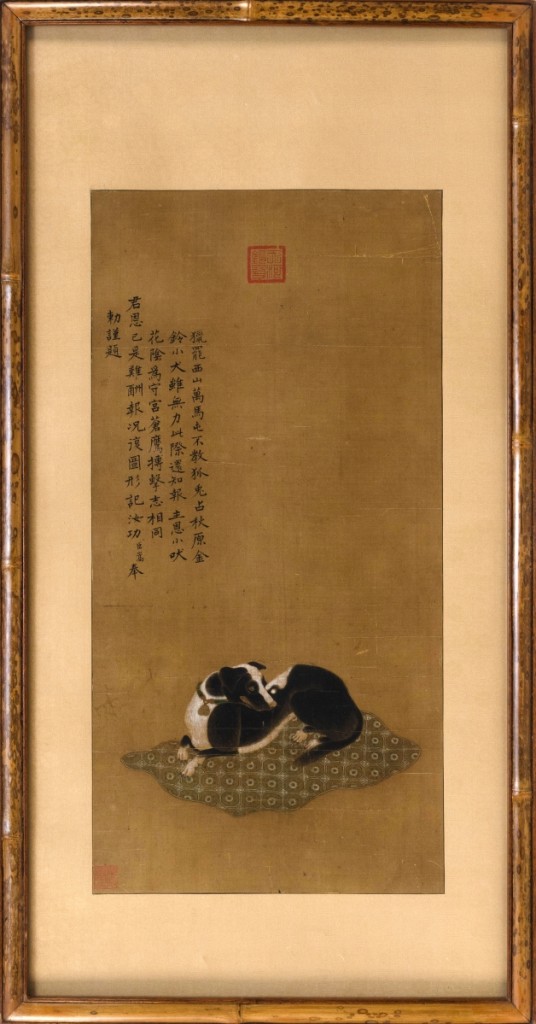 獵罷西山萬馬屯不教狐兔占秋原金
鈴小犬雖無力此際還知報主恩小吠
花陰為守宮蒼鷹搏擊志相同
君恩已是難酬報況復圖形記汝功 奉
勅謹題